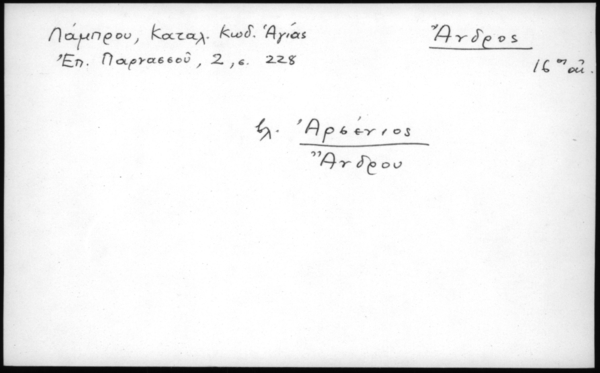 Λάμπρου, Καταλ. Κωδ. Ἁγίας
Ἐπ. Παρνασσοῦ, 2, σ. 228
Ἄνδρος
16ος αἰ.
βλ. Ἀρσένιος
Ἄνδρου